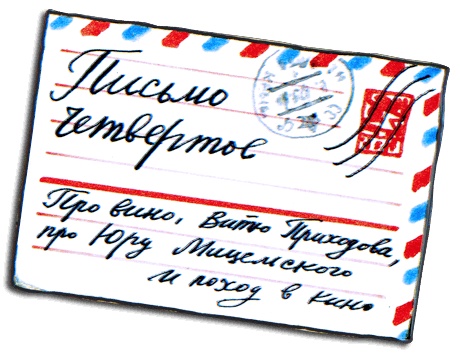 Письмо
четвертое
Про вино, Витю Приходова,
про Юру Мицемского
и поход в кино